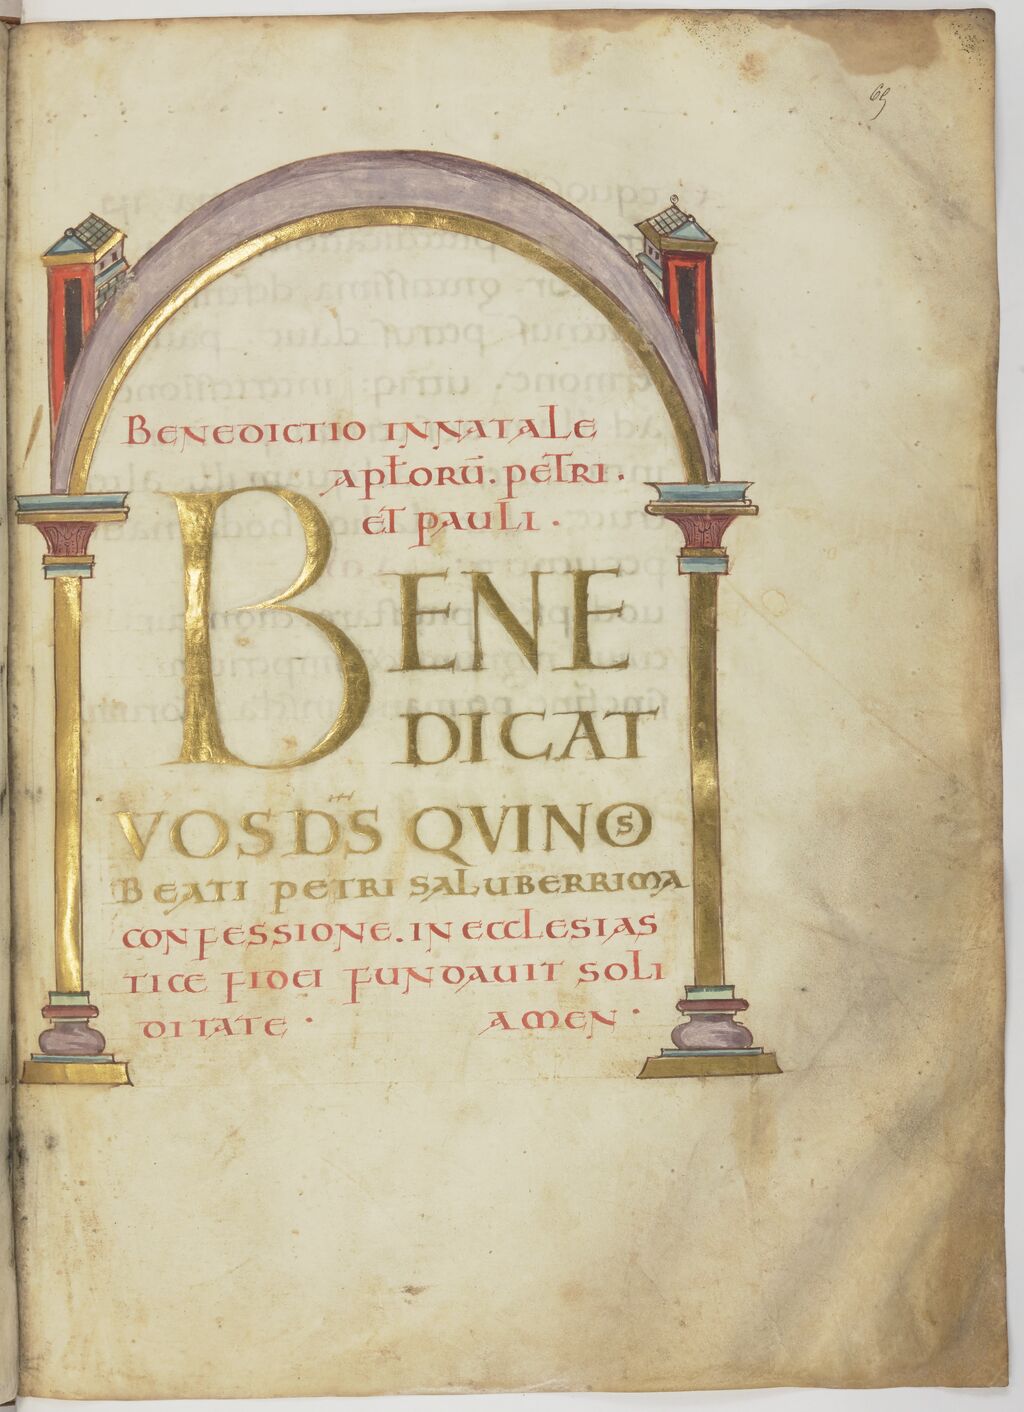 69
BENEDICTIO INNATALE
APƚORŪ. PETRI.
ET PAULI.
BENE
DICAT
VOS D̅S QVI NOS
BEATI PETRI SALUBERRIMA
CONFESSIONE. IN ECCLESIAS
TICE FIDEI FUNDAUIT SOLI
DITATE. AMEN.